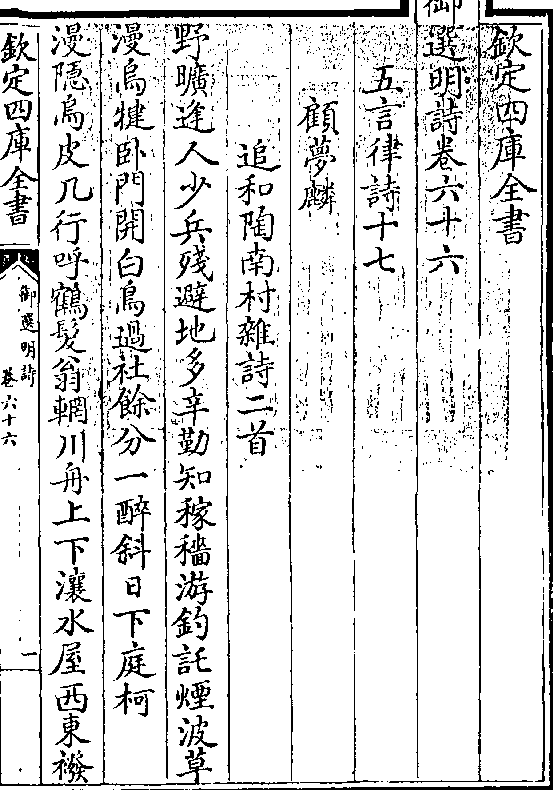 欽定四庫全書
御選明詩卷六十六
五言律詩十七
顧夢麟
追和陶南村雜詩二首
野曠逢人少兵殘避地多辛勤知稼穡游釣託煙波草
漫烏犍卧門開白鳥過社餘分一醉斜日下庭柯
漫隱烏皮几行呼鶴髮翁輞川舟上下瀼水屋西東襏
欽定四庫全書
御選明詩
卷六十六
一